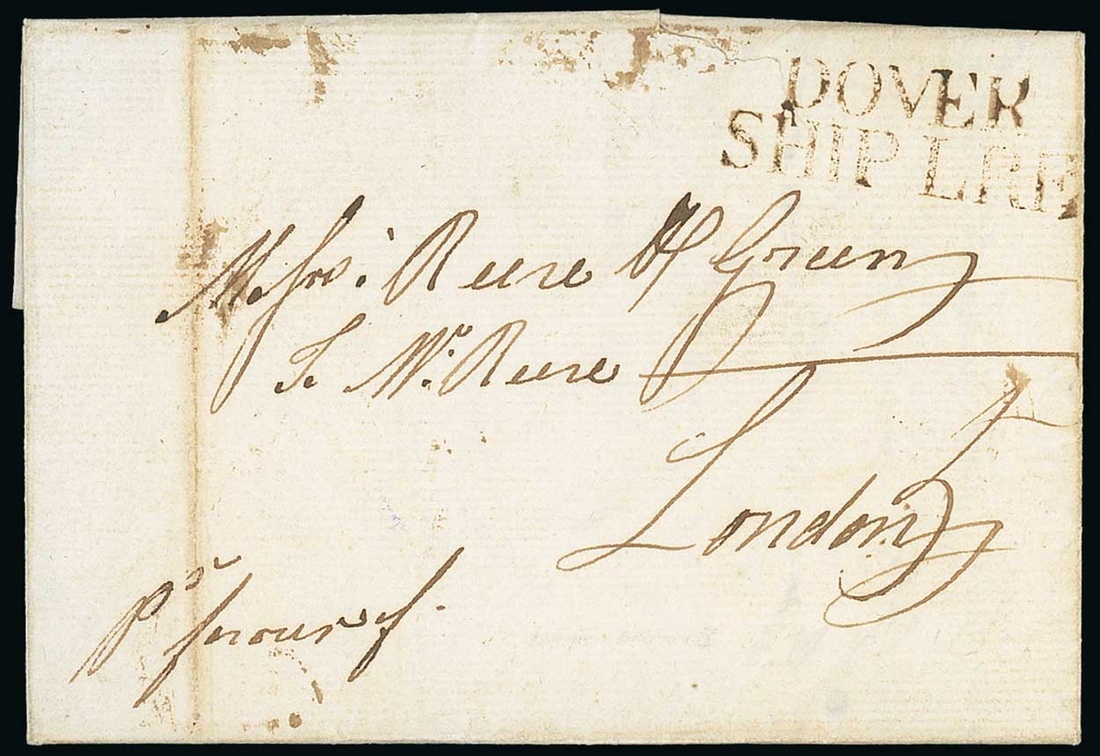 DOVER
SHIP LRE
Messrs: Reese & Green
To Mr. Reese
London
Pr favour of